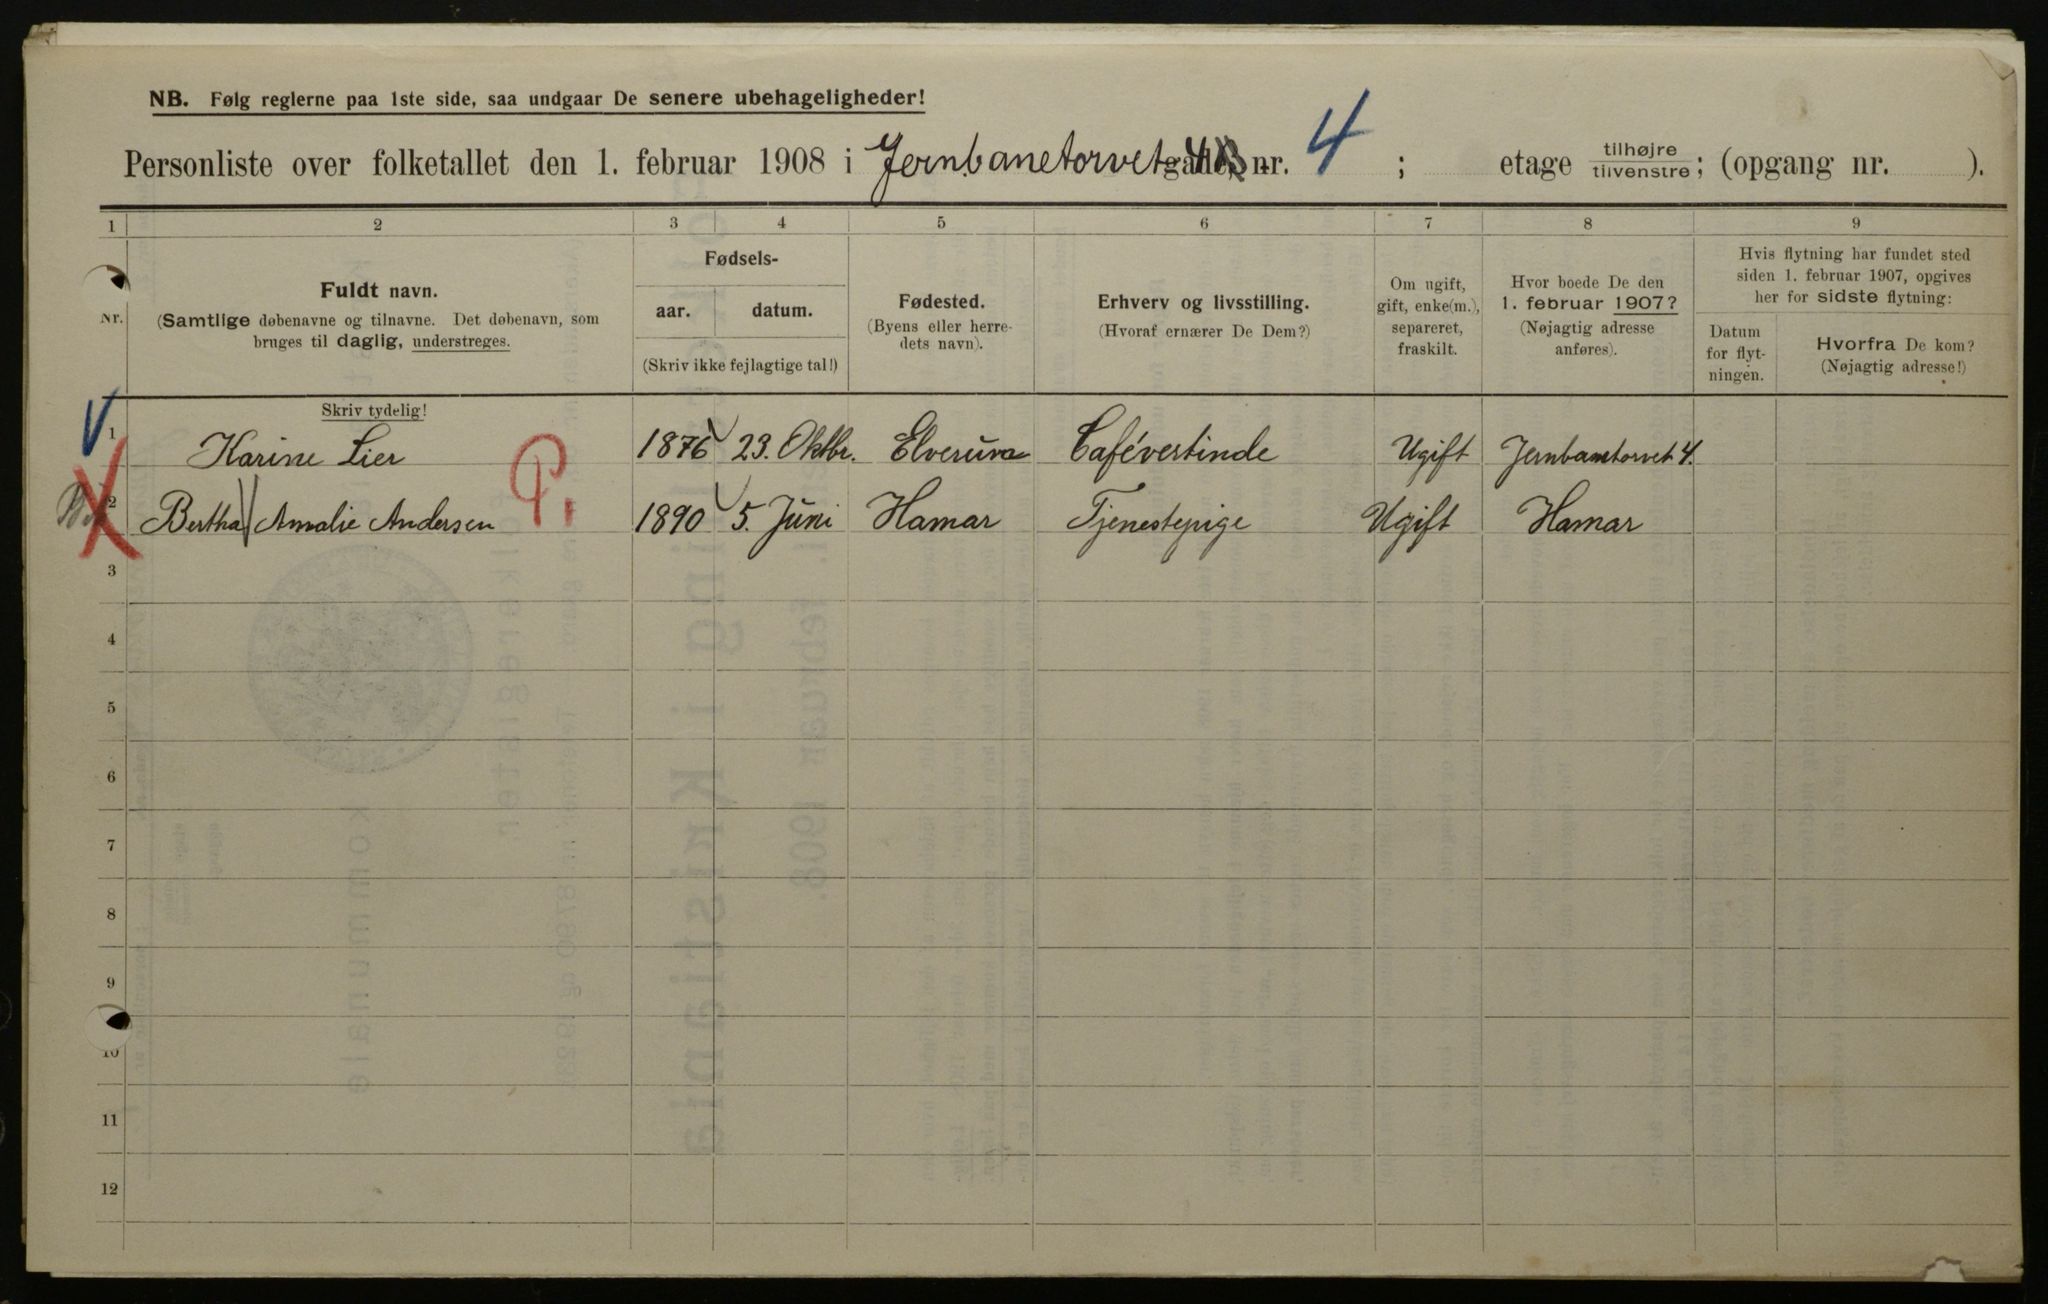 NB. Følg reglerne paa 1ste side, saa undgaar De senere ubehageligheder!
Personliste over folketallet den 1. februar 1908 i Jernbanetorvet gade nr. 4 ; etage tilhøjre/tilvenstre; (opgang nr. ).
1 2 3 4 5 6 7 8 9
Nr.
Fuldt navn.
(Samtlige døbenavne og tilnavne. Det døbenavn, som
bruges til daglig, understreges.
Fødsels-
aar. datum.
(Skriv ikke fejlagtige tal!)
Fødested.
(Byens eller herre-
dets navn).
Erhverv og livsstilling.
(Hvoraf ernærer De Dem?)
Om ugift,
gift, enke(m.),
separeret,
fraskilt.
Hvor boede De den
1. februar 1907?
(Nøjagtig adresse
anføres).
Hvis flytning har fundet sted
siden 1. februar 1907, opgives
her for sidste flytning:
Datum
for flyt-
ningen.
Hvorfra De kom?
(Nøjagtig adresse!)
Skriv tydelig!
1 Karine Lier 1876 23. Oktbr. Elverum Cafévertinde Ugift Jernbanetorvet 4.
P.
2 Bertha Amalie Andersen 1890 5. Juni Hamar Tjenestepige Ugift Hamar
3
4
5
6
7
8
9
10
11
12